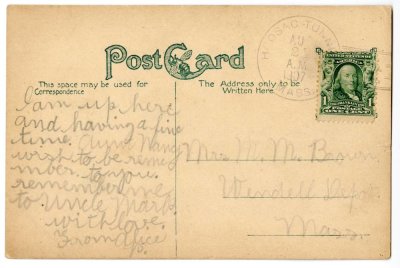 Post Card
This space may be used for
Correspondence
The Address only to be
Written Here
A.M.
MASS.
1
I am up here
and having a fine
time. Aunt Nancy
wish to be reme
mber to you.
remember me
to Uncle Mark.
with love.
From
Mrs. M. M. Brown
Wendell Depot
Mass.